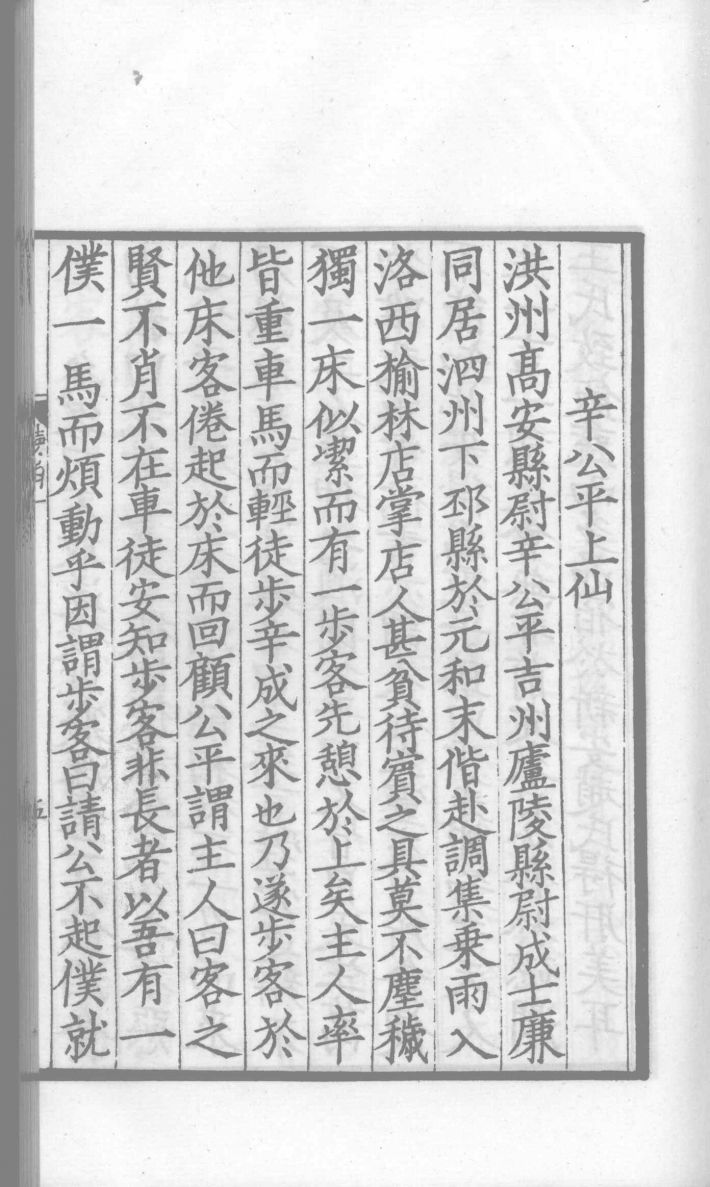 辛公平上仙
洪州髙安縣尉辛公平吉州廬陵縣尉成士廉
同居泗州下邳縣於元和末偕赴調集乗雨入
洛西榆林店掌店人甚貧待賓之具莫不塵穢
獨一床似潔而有一步客先憩於上矣主人率
皆重車馬而輕徒步辛成之來也乃遂步客於
他床客倦起於床而回顧公平謂主人曰客之
賢不肖不在車徒安知步客非長者以吾有一
僕一馬而煩動乎因謂步客曰請公不起僕就
五